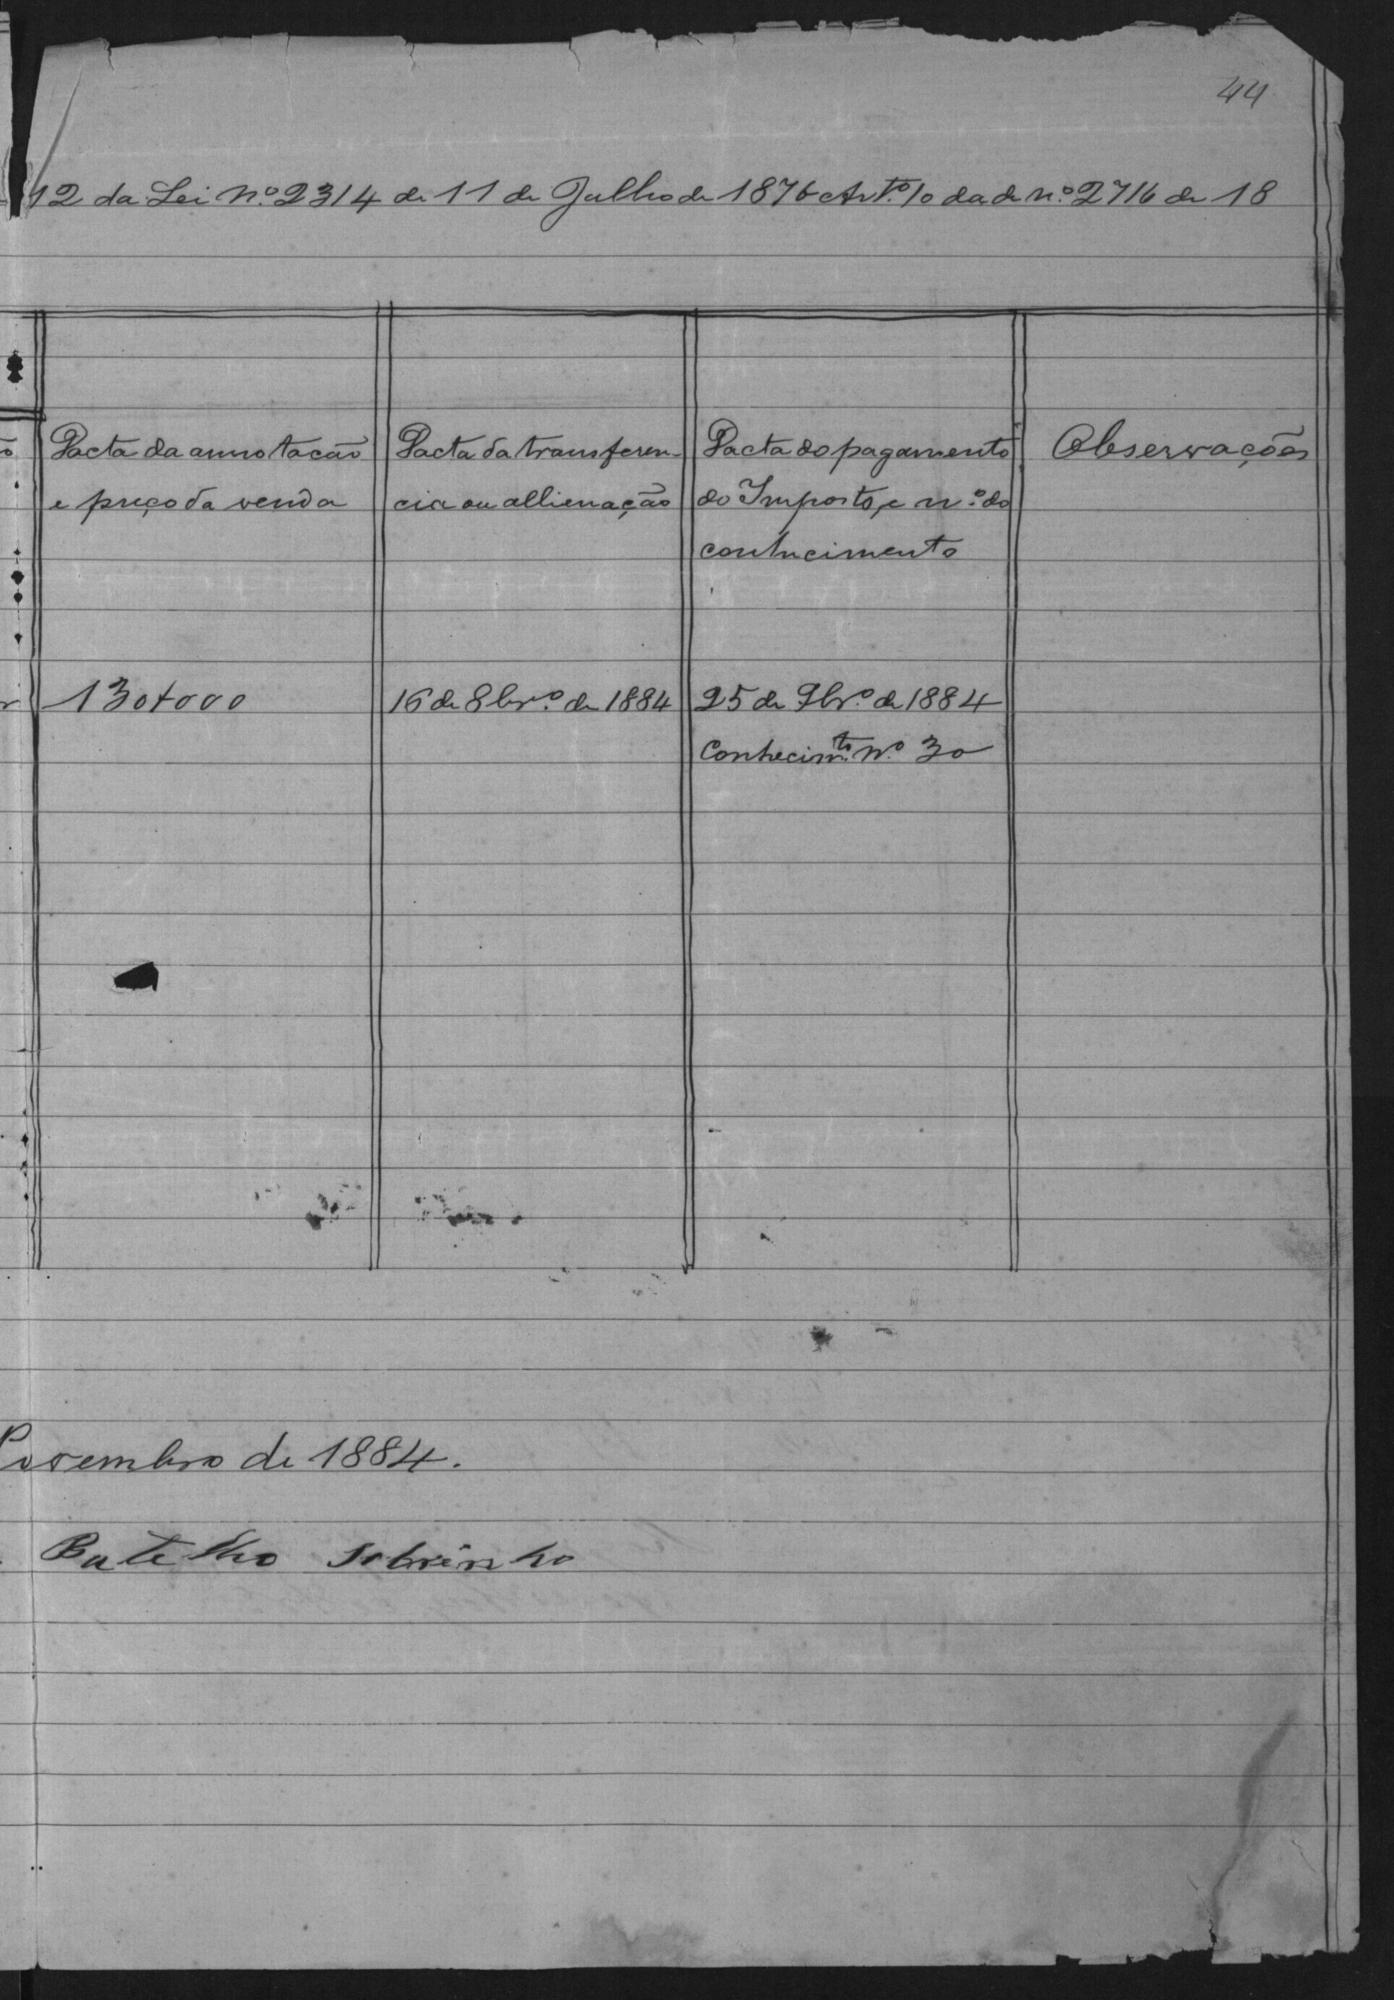 44
12 da Lei Nº 2314 de 11 de Julho de 1876 Artº 10 da de nº 2716 de 18
Dacta da annotacão
e preço da venda
Dacta da transferen-
cia ou allienação
Dacta do pagamento
do Imposto, e nº do
conhecimento
Observações
130$000
16 de 8brº de 1884
25 de 9brº de 1884
Conhecimto Nº 30
Novembro de 1884.
Botelho Sobrinho